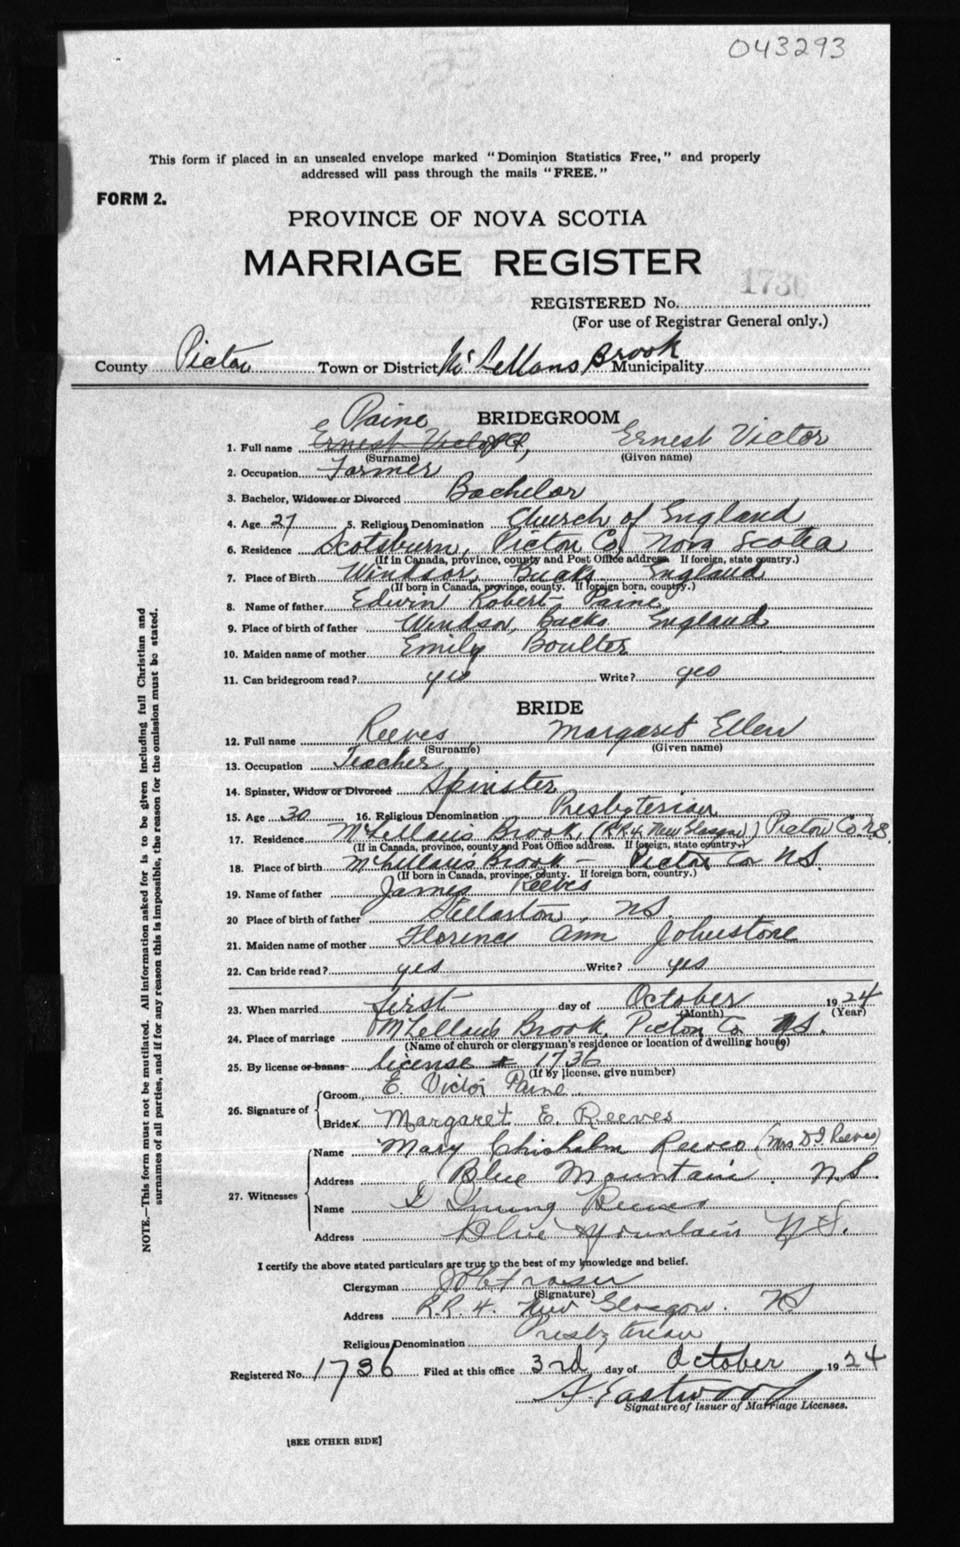 043293
This form if placed in an unsealed envelope marked "Dominion Statistics Free," and properly
addressed will pass through the mails "FREE."
FORM 2.
PROVINCE OF NOVA SCOTIA
MARRIAGE REGISTER
REGISTERED No. 1736
(For use of Registrar General only.)
County Pictou Town or District McLellans Brook Municipality
BRIDEGROOM
Paine
1. Full name Ernest Victor, Ernest Victor
(Surname) (Given name)
2. Occupation Farmer
3. Bachelor, Widower or Divorced Bachelor
4. Age 27 5. Religious Denomination Church of England
6. Residence Scotsburn, Pictou Co, Nova Scotia
(If in Canada, province, county and Post Office address. If foreign, state country.)
7. Place of Birth Windsor, Bucks England
(If born in Canada, province, county. If foreign born, country.)
8. Name of father Edwin Robert Paine
9. Place of birth of father Windsor, Bucks England
10. Maiden name of mother Emily Boulter
11. Can bridegroom read? yes Write? yes
BRIDE
12. Full name Reeves Margaret Ellen
(Surname) (Given name)
13. Occupation Teacher
14. Spinster, Widow or Divorced Spinster
15. Age 30 16. Religious Denomination Presbyterian
17. Residence McLellan's Brook, (R.R.4, New Glasgow) Pictou Co N.S.
(If in Canada, province, county and Post Office address. If foreign, state country.)
18. Place of birth McLellan's Brook - Pictou Co N.S.
(If born in Canada, province, county. If foreign born, country.)
19. Name of father James Reeves
20 Place of birth of father Stellarton, N.S.
21. Maiden name of mother Florence Ann Johnstone
22. Can bride read? yes Write? yes
23. When married first day of October 1924
(Month) (Year)
24. Place of marriage McLellan's Brook, Pictou Co. N.S.
(Name of church or clergyman's residence or location of dwelling house)
25. By license or banns license # 1736
(If by license, give number)
26. Signature of Groom E. Victor Paine
Bride Margaret E. Reeves
27. Witnesses Name Mary Chisholm Reeves (Mrs D.I. Reeves)
Address Blue Mountain. N.S.
Name D Irving Reeves
Address Blue Mountain N.S.
I certify the above stated particulars are true to the best of my knowledge and belief.
Clergyman Fraser
(Signature)
Address R.R. 4. New Glasgow. N S
Religious Denomination Presbyterian
Registered No. 1736 Filed at this office 3rd day of October 1924
Eastwood
Signature of Issuer of Marriage Licenses.
[SEE OTHER SIDE]
NOTE.—This form must not be mutilated. All information asked for is to be given including full Christian and
surnames of all parties, and if for any reason this is impossible, the reason for the omission must be stated.